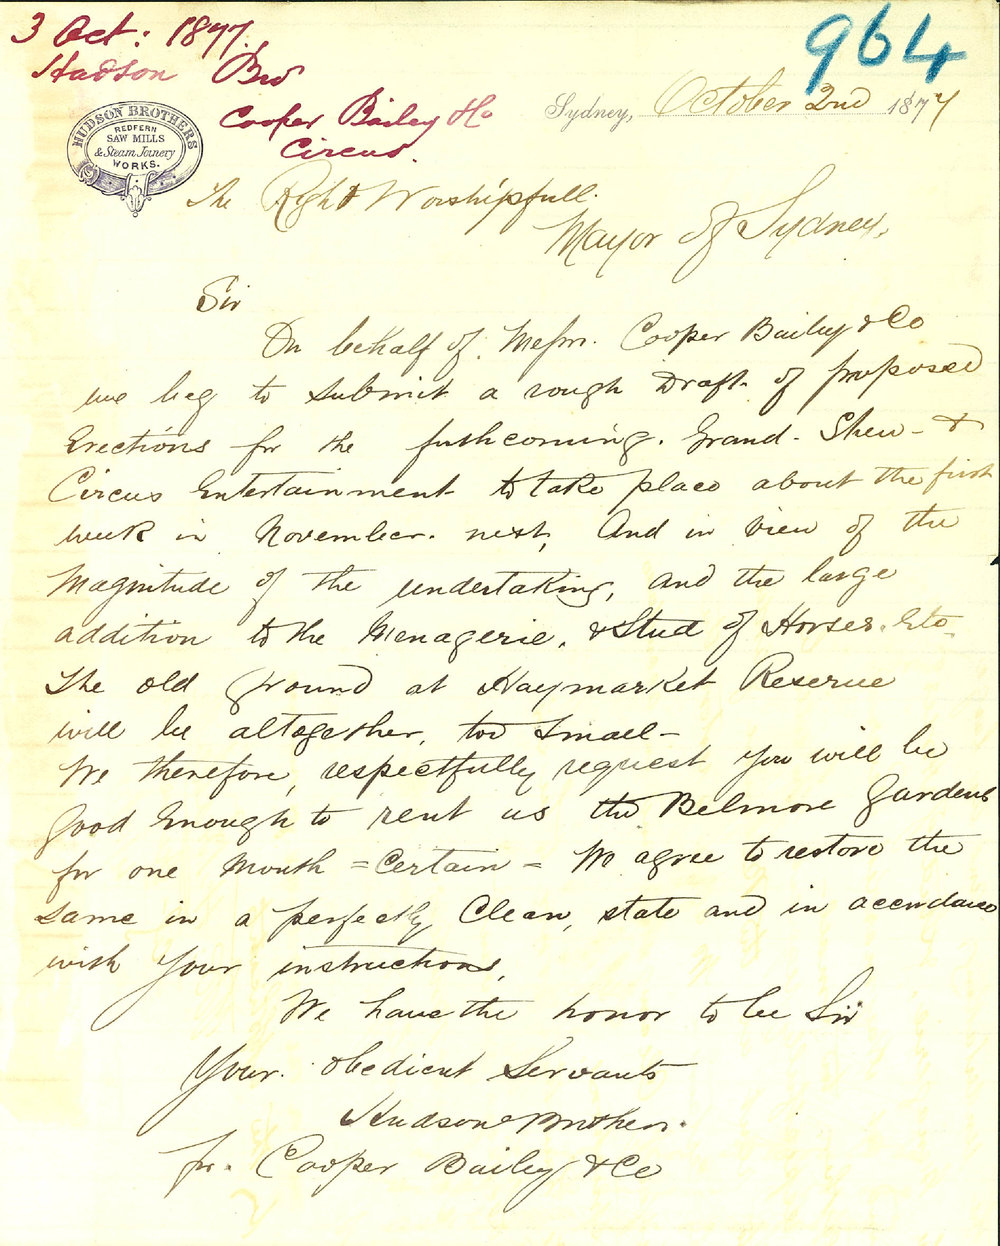 3 Oct: 1877.
Hudson Bros
Cooper Bailey & Co
Circus.
964
HUDSON BROTHERS
REDFERN
SAW MILLS
& Steam Joinery
WORKS.
Sydney, October 2nd 1877
The Right Worshipfull.
Mayor of Sydney.
Sir
On behalf of Messrs. Cooper Bailey & Co
we beg to submit a rough Draft of proposed
Erections for the forthcoming. Grand. Shew - &
Circus Entertainment to take place about the first
week in November. next, And in view of the
Magnitude of the undertaking, and the large
addition to the Menagerie, & Stud of Horses. Etc.
The old Ground at Haymarket Reserve
will be altogether, too Small -
We therefore, respectfully request you will be
Good Enough to rent us the Belmore Gardens
for one Month = Certain = We agree to restore the
same in a perfectly Clean, state and in accordance
with your instructions,
We have the honor to be Sir
Your. obedient Servants
Hudson Brothers.
pr. Cooper Bailey & Co